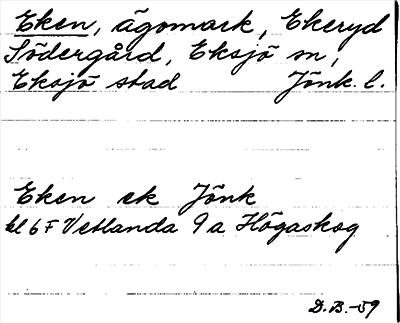 Eken, ägomark, Ekeryd
Södergård, Eksjö sn,
Eksjö stad Jönk. l.
Eken ek Jönk
bl 6F Vetlanda 9a Högaskog
D.B.-59